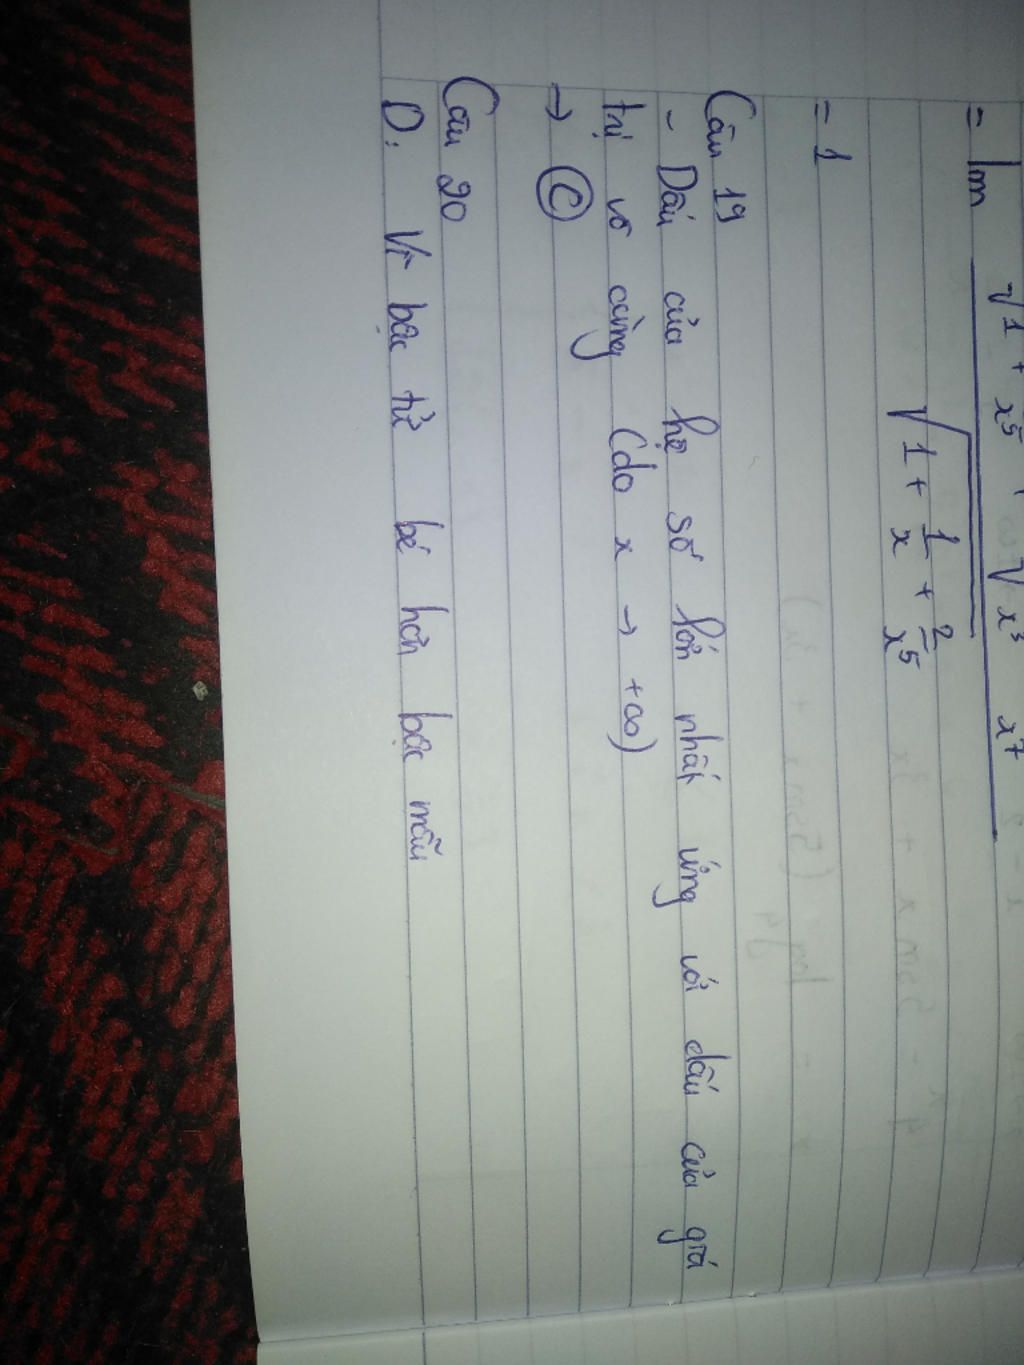 = lim √1 + x⁵ √x³ x⁷
√1 + 1/x + 2/x⁵
= 1
Câu 19
- Dấu của hệ số lớn nhất ứng với dấu của giá
trị vô cùng (do x → +∞)
→ C
Câu 20
D. Vì bậc tử bé hơn bậc mẫu